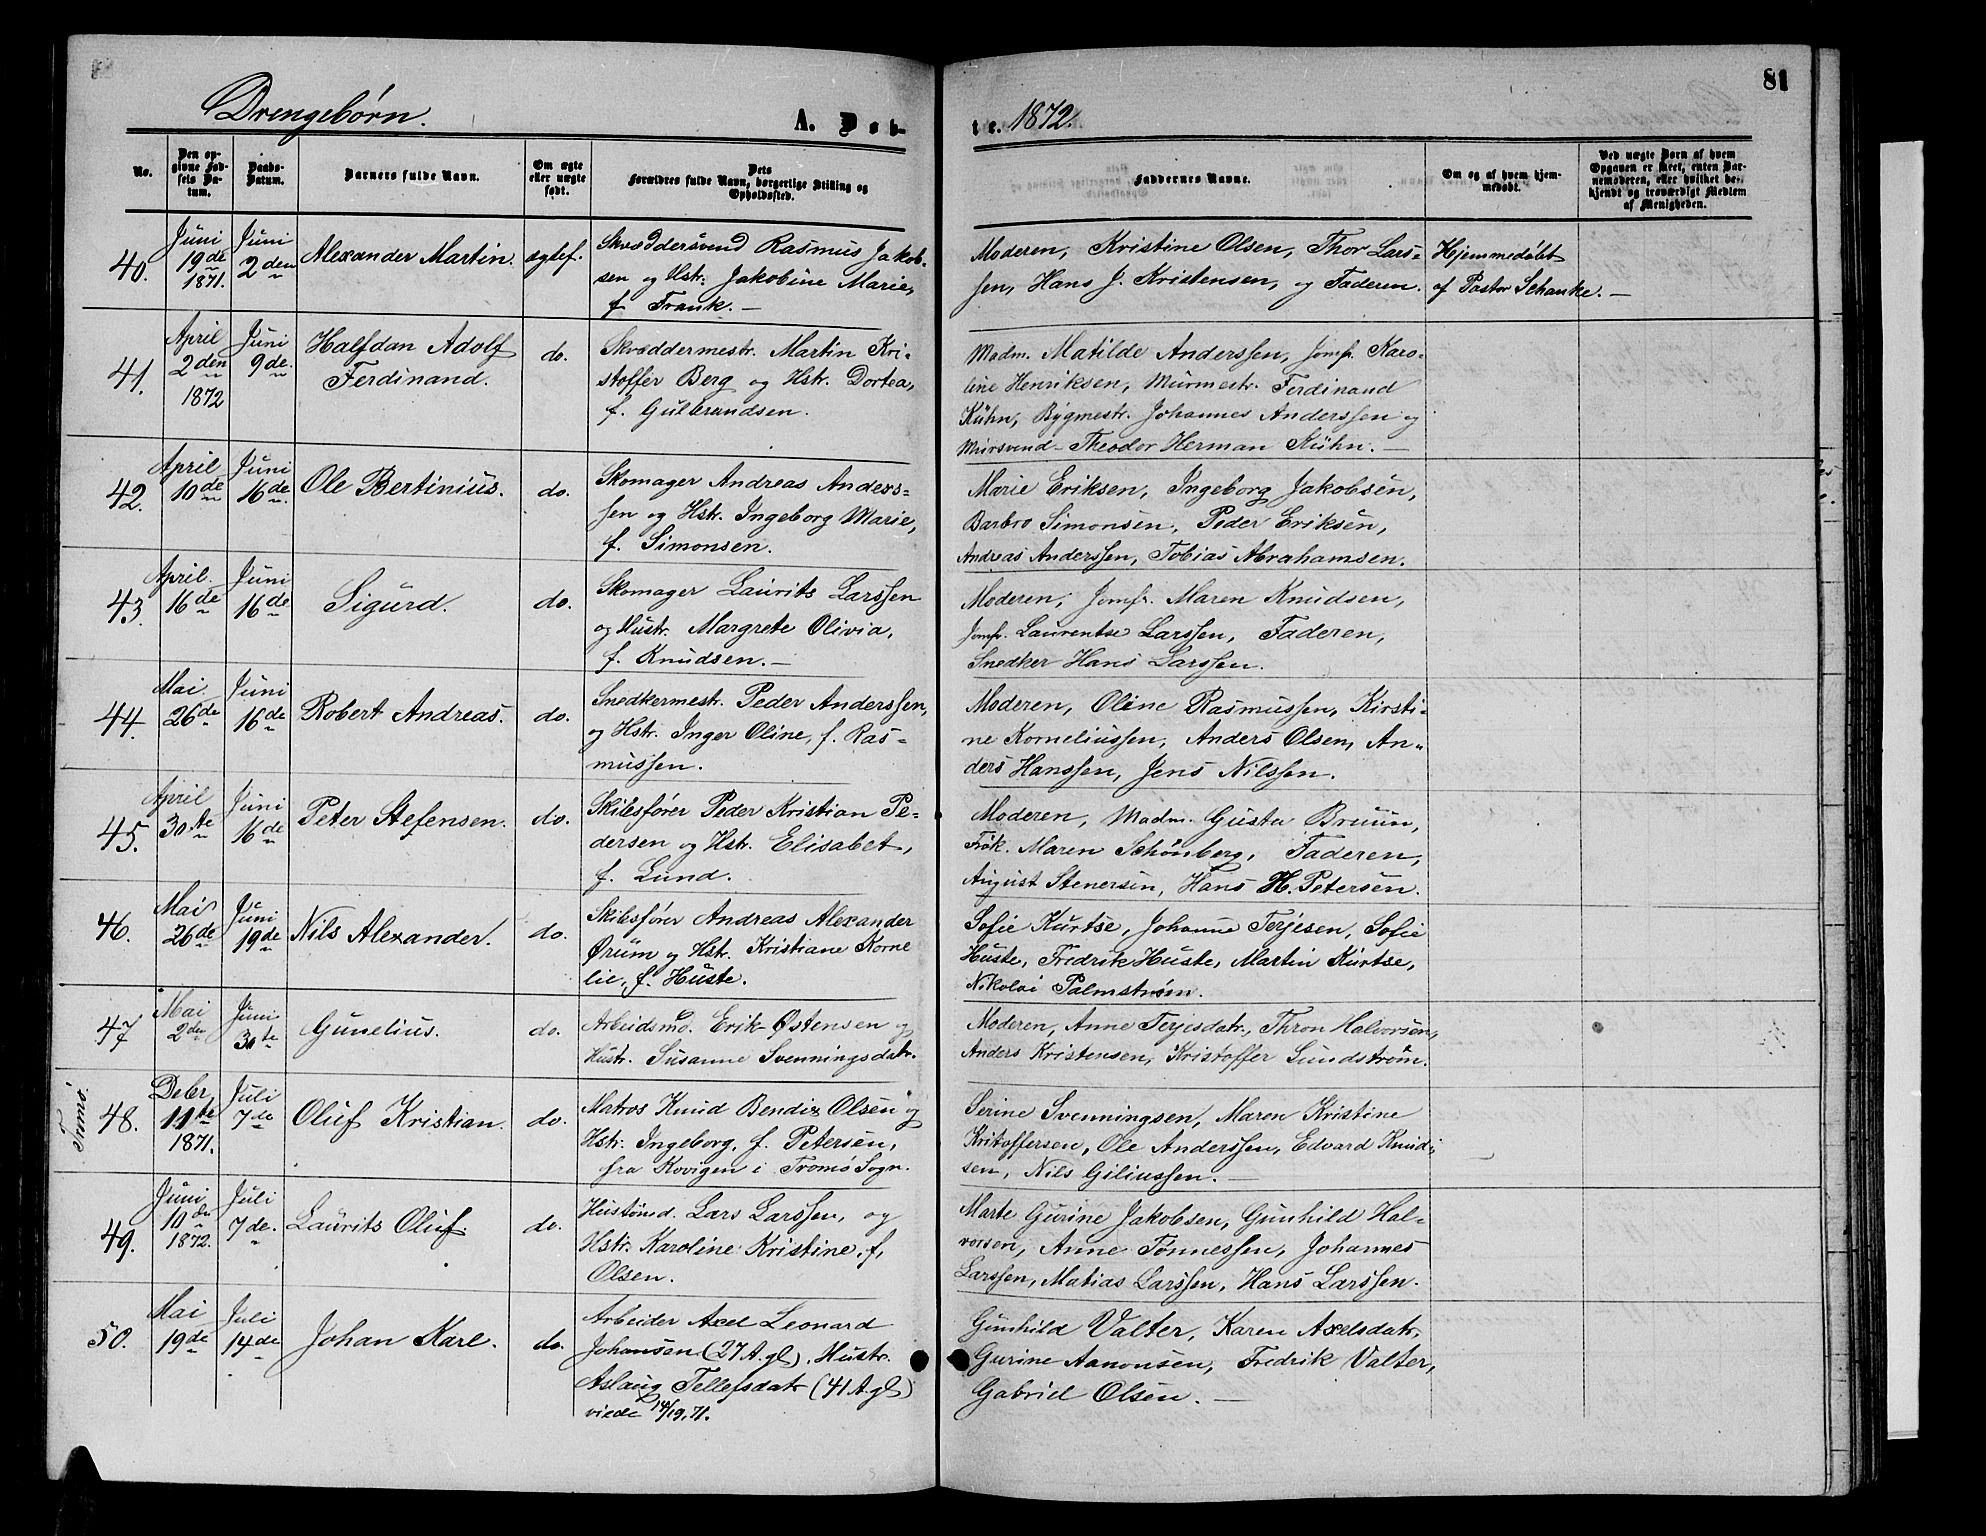 81
Drengebørn. A. Døb-
te. 1872.
No.
Den op-
givne Fød-
sels Da-
tum.
Daabs-
Datum.
Barnets fulde Navn.
Om ægte
eller uægte
født.
Dets
Forældres fulde Navn, borgerlige Stilling og
Opholdssted.
Faddernes Navne.
Om og af hvem hjem-
medøbt.
Ved uægte Børn af hvem
Opgaven er skeet, enten Bar-
nemoderen, eller hvilket be-
kjendt og troværdigt Medlem
af Menigheden.
40.
Juni
19de
1871.
Juni
2den
Alexander Martin.
ægtef.
Skræddersvend Rasmus Jakob-
sen og Hstr. Jakobine Marie,
f. Frank. —
Moderen, Kristine Olsen, Thor Lars-
sen, Hans J. Kristensen, og Faderen.
Hjemmedøbt
af Pastor Schanke. —
41.
April
2den
1872
Juni
9de
Halfdan Adolf
Ferdinand.
do.
Skræddermestr. Martin Kri-
stoffer Berg og Hstr. Dortea,
f. Gulbrandsen.
Madm. Matilde Anderssen, Jomfr. Karo-
line Henriksen, Murmestr. Ferdinand
Kühn, Bygmestr. Johannes Anderssen og
Mursvend Theodor Herman Kühn. —
42.
April
10de
Juni
16de
Ole Bertinius.
do.
Skomager Andreas Anders-
sen og Hstr. Ingeborg Marie,
f. Simonsen.
Marie Eriksen, Ingeborg Jakobsen,
Barbro Simonsen, Peder Eriksen,
Andreas Anderssen, Tobias Abrahamsen.
43.
April.
16de
Juni
16de
Sigurd.
do.
Skomager Laurits Larssen
og Hustr. Margrete Olivia,
f. Knudsen. —
Moderen, Jomfr. Maren Knudsen,
Jomfr. Laurentse Larssen, Faderen,
Snedker Hans Larssen.
44.
Mai.
26de
Juni
16de
Robert Andreas.
do.
Snedkermestr. Peder Anderssen,
og Hstr. Inger Oline, f. Ras-
mussen.
Moderen, Oline Rasmussen, Kirsti-
ne Korneliussen, Anders Olsen, An-
ders Hanssen, Jens Nilssen.
45.
April
30te
Juni
16de
Peter Stefensen.
do.
Skibsfører Peder Kristian Pe-
dersen og Hstr. Elisabet,
f. Lund.
Moderen, Madm. Gusta Bruun,
Frøk. Maren Schönberg, Faderen,
August Stenersen, Hans H. Petersen.
46.
Mai
26de
Juni
19de
Nils Alexander.
do.
Skibsfører Andreas Alexander
Ørum og Hstr. Kristiane Korne
lie, f. Huste.
Sofie Kurtse, Johanne Terjesen, Sofie
Huste, Fredrik Huste, Martin Kurtse,
Nikolai Palmstrøm.
47
Mai
2den
Juni
30te
Gunelius.
do.
Arbeidsmd. Erik Østensen og
Hustr. Susanne Svenningsdatr.
Moderen, Anne Terjesdatr., Thron Halvorsen,
Anders Kristensen, Kristoffer Sundstrøm.
Tromø.
48.
Debr
11te
1871.
Juli
7de
Oluf Kristian.
do.
Matros Knud Bendix Olsen og
Hstr. Ingeborg, f. Petersen,
fra Kovigen i Tromø Sogn.
Serine Svenningsen, Maren Kristine
Kristoffersen, Ole Anderssen, Edvard Knud-
sen, Nils Giliussen. —
49.
Juni
10de
1872.
Juli
7de.
Laurits Oluf.
do.
Hustømd. Lars Larssen, og
Hstr. Karoline Kristine, f,
Olsen.
Marte Gurine Jakobsen, Gunhild Hal-
vorsen, Anne Tønnessen, Johannes
Larssen, Matias Larssen, Hans Larssen.
50.
Mai
19de
Juli
14de
Johan Karl.
do.
Arbeider Axel Leonard
Johansen (27 A. gl), Hustr.
Aslaug Tellefsdatr (41 A. gl)
viede
Gunhild Valter, Karen Axelsdatr,
Gurine Aanonsen, Fredrik Valter,
Gabriel Olsen. —